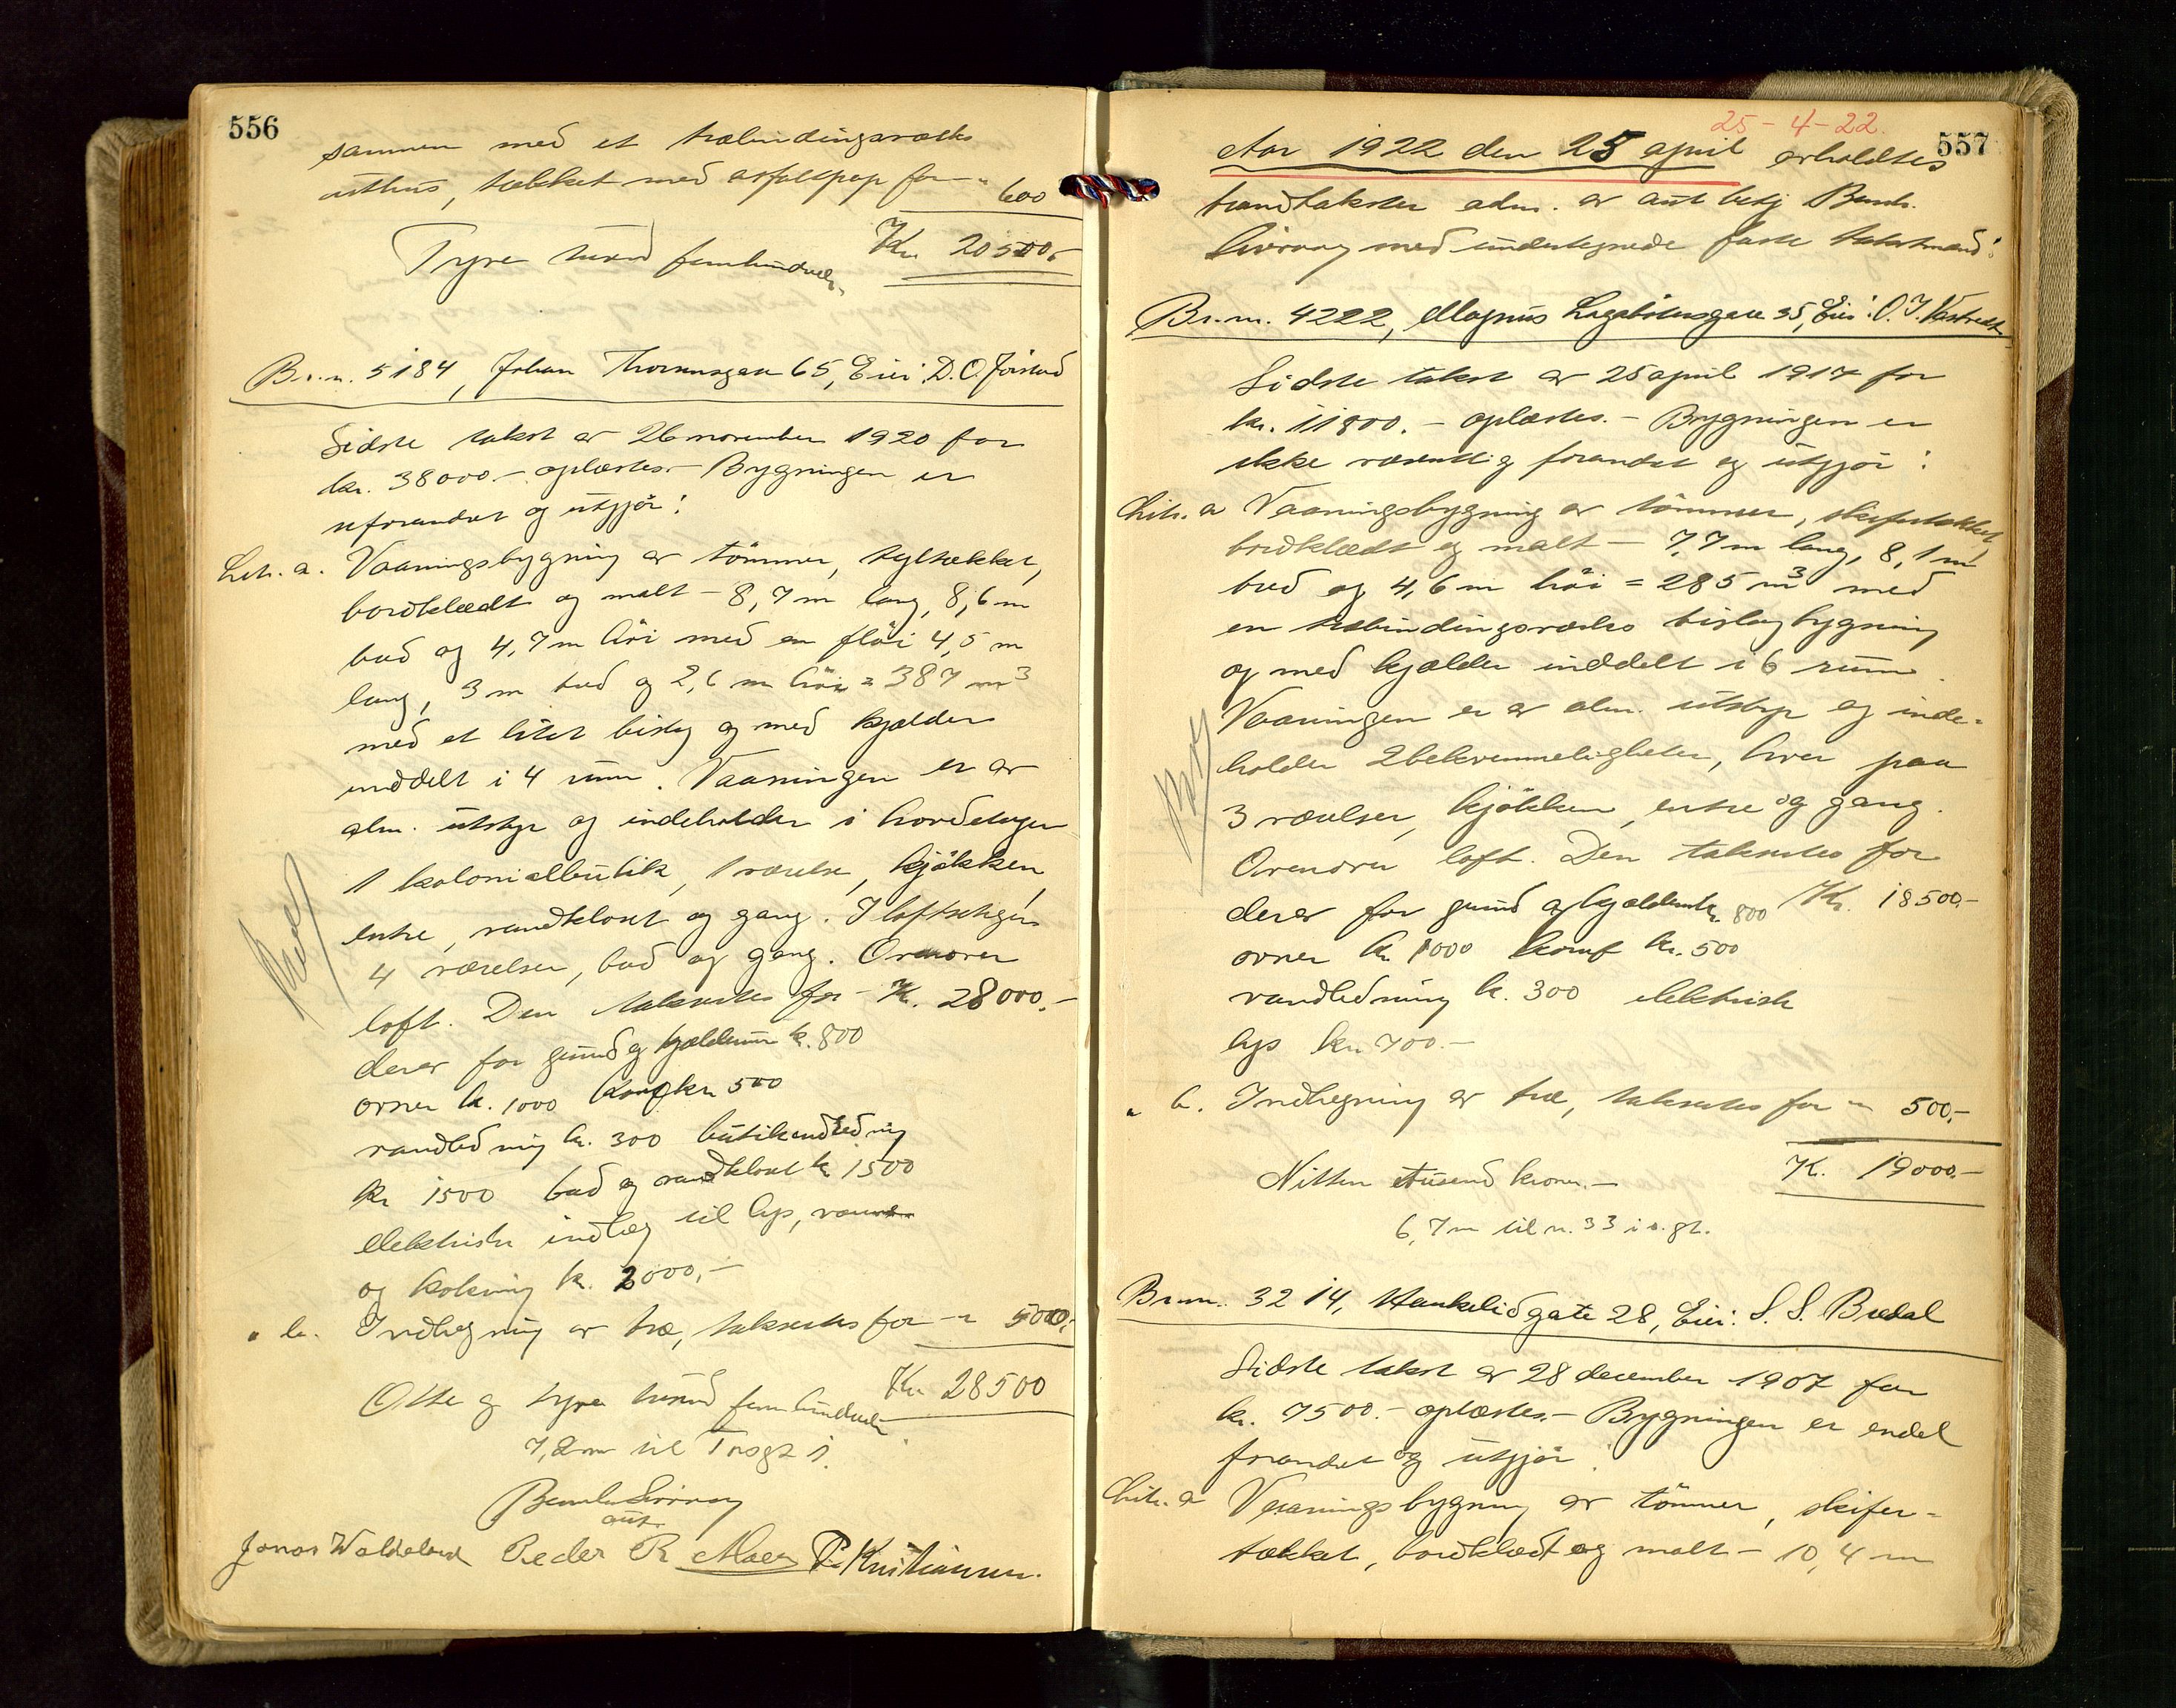 556
sammen med et træbindingsværks
uthus, tækket med asfaltpap for - " 600
Kr. 20500.-
Tyve tusind femhundrede
Br.n. 5184, Johan Thorsensgate 65, Eier: D. O. Jørstad
Sidste takst av 26 november 1920 for
kr. 38000.- oplæstes.- Bygningen er
uforandret og utgjør:
Litr. a. Vaaningsbygning av tømmer, tyltækket,
bordklædt og malt - 8,7 m lang, 8,6 m
bred og 4,7 m høi med en fløi 4,5 m
lang, 3 m bred og 2,6 m høi = 387 m3
med et litet bislag og med kjælder
inddelt i 4 rum. Vaaningen er av
alm. utstyr og indeholder i hovedetagen
1 kolonialbutik, 1 værelse, kjøkken,
entre, vandklosæt og gang. I loftsetagen
4 værelser, bad og gang. Ovenover
loft. Den takseres for - Kr. 28000.-
derav for grund og kjældermur kr. 800
ovner kr. 1000 komf kr. 500
vandledning kr. 300 butikindredning
kr 1500 bad og vandklosæt kr 1500
elektrisk indlæg til lys, varme
og kokning kr. 2000.-
" b. Indhegning av træ, takseres for - " 500.-
Kr. 28500
Otte og tyve tusind fem hundrede
7,2 m til
Bernh. Sivrvag
aut
Jonas Waldeland Peder R. Moen P. Kristiansen.
557
25-4-22.
Aar 1922 den 25 april avholdtes
brandtakster adm. av aut besg Bernh.
med undertegnede faste takstmænd:
Br.nr. 4222, Magnus Lagabøtersgate 35, Eier: O. J. Vastvedt
Sidste takst av 25 april 1917 for
kr. 11800.- oplæstes.- Bygningen er
ikke væsentlig forandret og utgjør:
Litr. a Vaaningsbygning av tømmer, skifertækket,
bordklædt og malt - 7,7 m lang, 8,1 m
bred og 4,6 m høi = 285 m3 med
en træbindingsverks bislagbygning
og med kjælder inddelt i 6 rum.
Vaaningen er av alm. utstyr og inde-
holder 2 bekvemmeligheter, hver paa
3 værelser, kjøkken, entre og gang.
Ovenover loft. Den takseres for
Kr. 18500.-
derav for grund og kjældermur kr. 800
ovner kr. 1000 komf kr. 500
vandledning kr. 300 elektrisk
lys kr. 700.-
" b. Indhegning av træ, takseres for - " 500.-
Kr. 19000.-
Nitten tusend kroner.-
6,7 m til n. 33 i s. gt.
Br.nr. 3214, Haukelidgate 28, Eier: S. S. Bredal
Sidste takst av 28 december 1907 for
kr. 7500.- oplæstes.- Bygningen er endel
forandret og utgjør:
Litr. a Vaaningsbygning av tømmer, skifer-
tækket, bordklædt og malt - 10,4 m